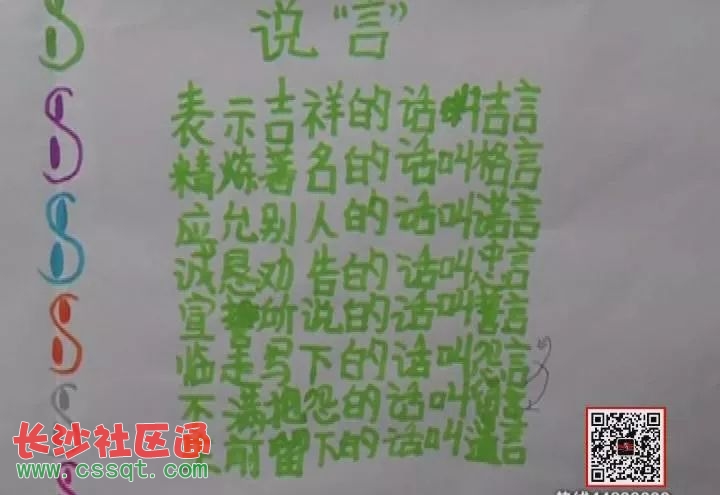 说“言”
表示吉祥的话叫吉言
精炼著名的话叫格言
应允别人的话叫诺言
诚恳劝告的话叫忠言
宣誓所说的话叫誓言
临走写下的话叫怨言
不满抱怨的话叫留言
前留下的话叫遗言
长沙社区通
www.cssqt.com